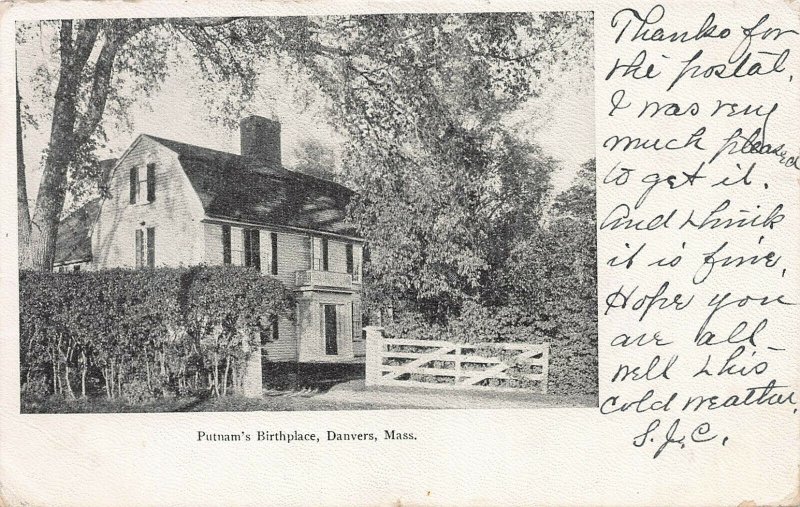 Thanks for
the postal,
I was very
much pleased
to get it.
And think
it is fine,
Hope you
are all
well this
cold weather,
S.J.C.
Putnam's Birthplace, Danvers, Mass.